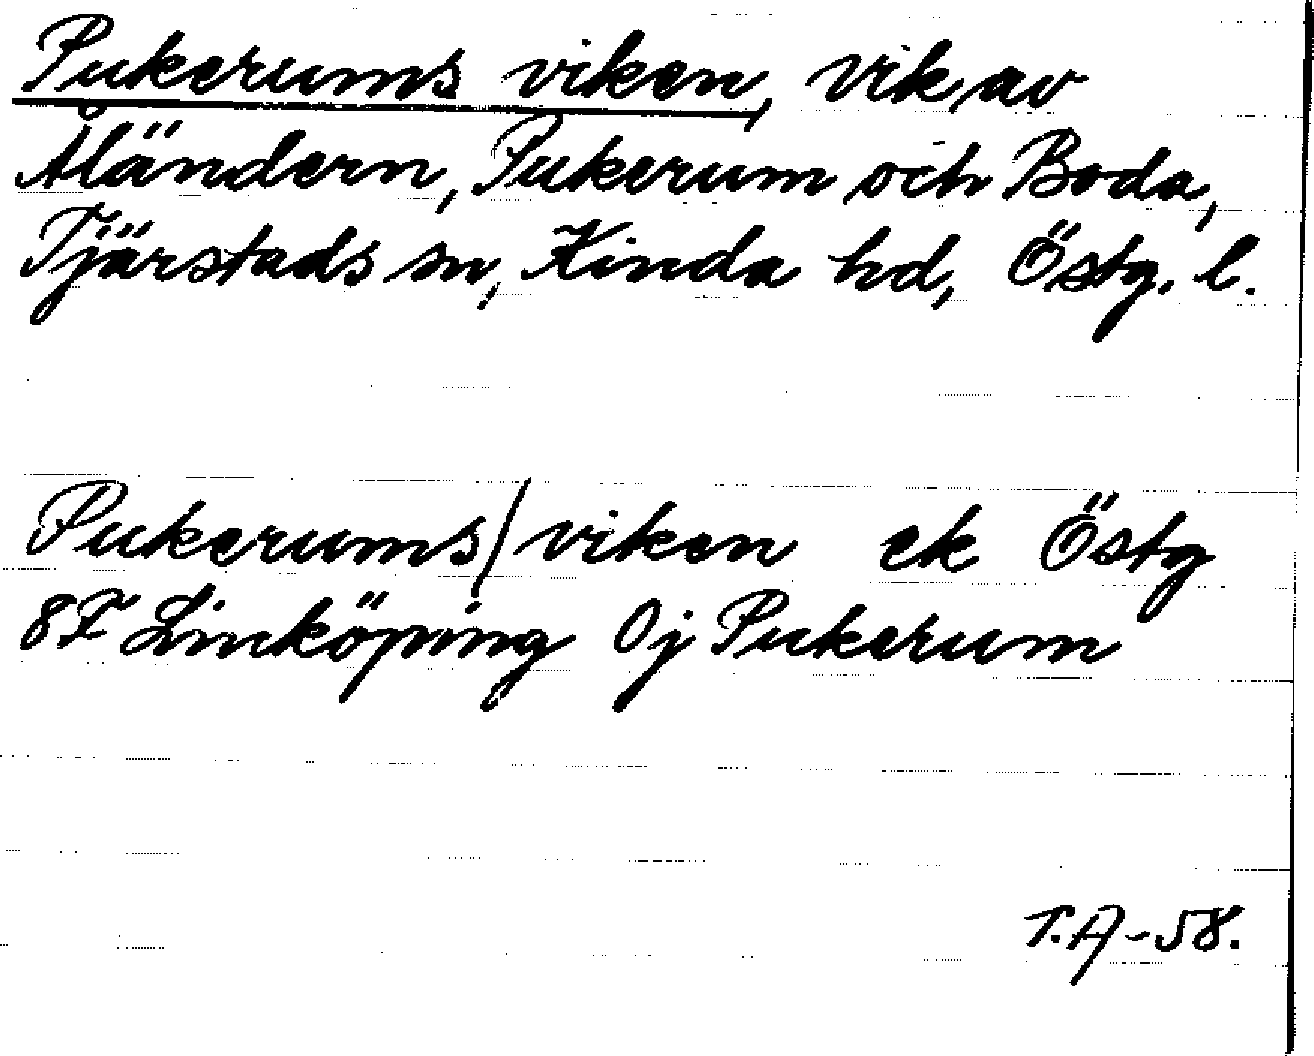 Pukerums viken, vik av
Åländern, Pukerum och Boda,
Tjärstads sn, Kinda hd, Östg. l.
Pukerums/viken ek Östg
8F Linköping Oj Pukerum
T.A-58.